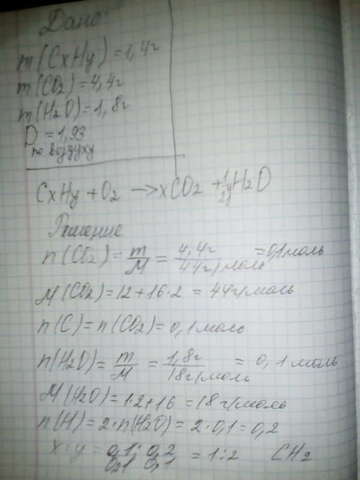 Дано:
m(CxHy)=1,4г
m(CO2)=4,4г
m(H2O)=1,8г
D =1,93
по воздуху
CxHy + O2 → xCO2 + 1/2yH2O
Решение
n(CO2) = m/M = 4,4г/44г/моль =0,1моль
M(CO2)=12+16·2 = 44г/моль
n(C)=n(CO2)=0,1моль
n(H2O)= m/M = 1,8г/18г/моль = 0,1моль
M(H2O)=1·2+16 =18г/моль
n(H)=2·n(H2O)=2·0,1=0,2
x:y= 0,1/0,1 : 0,2/0,1 = 1:2 CH2